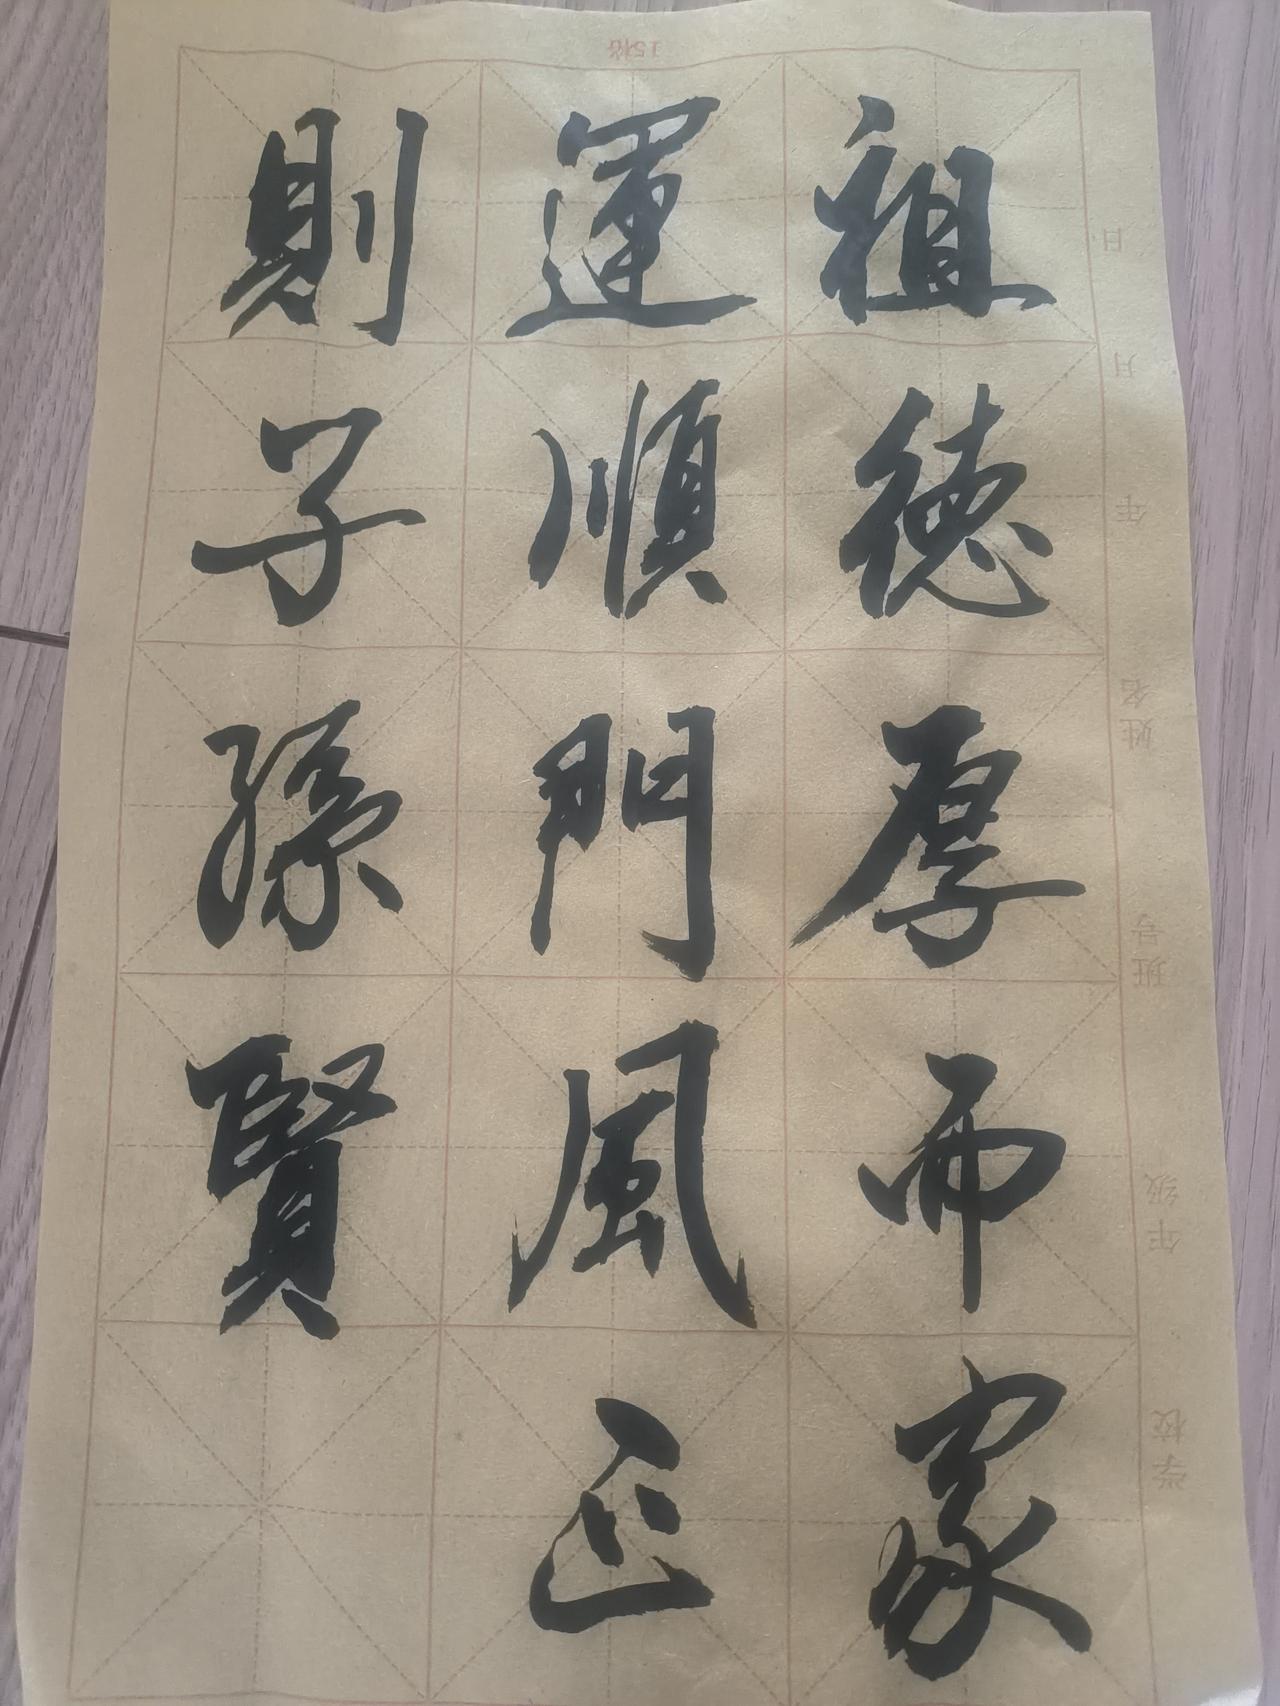 祖德厚而家
運順門風正
則子孫賢
15格
學校
年级
班号
姓名
年
月
日